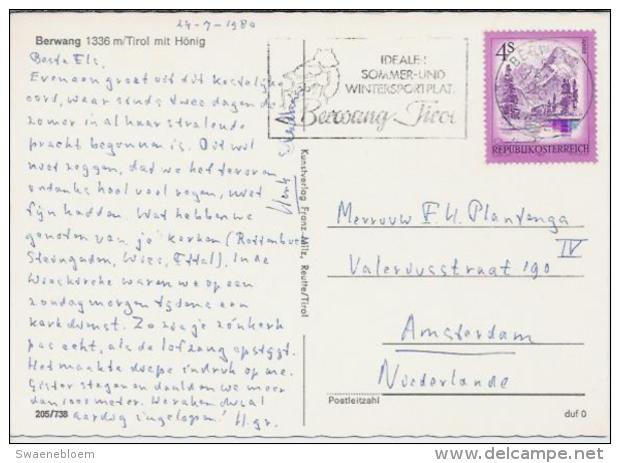 24-7-1980
Berwang 1336 m/Tirol mit Hönig
Beste Els.
Even een groet uit dit kostelijke
oord, waar sinds twee dagen de
zomer in al haar stralende
pracht begonnen is. Dit wil
niet zeggen, dat we het tevoren
ondanks heel veel regen, niet
fijn hadden. Wat hebben we
genoten van je kerken (Rottenbuch
Steingaden, Wies, Ettal). In de
Wieskirche waren we op een
zondagmorgen tijdens een
kerkdienst. Zo zie je zo'n kerk
pas echt, als de lofzang opstijgt.
Het maakte diepe indruk op me.
Gisteren daalden we meer
dan 1000 meter. We raken al
aardig ingelopen! H. gr.
205/738
IDEALER
SOMMER-UND
WINTERSPORTPLATZ
Berwang Tirol
4S
BERWANG
REPUBLIK ÖSTERREICH
Kunstverlag Franz Milz, Reutte/Tirol
Mevrouw E. H. Plantenga
Valeriusstraat 190 IV
Amsterdam
Niederlande
Postleitzahl
duf 0
Swaenebloem
www.delcampe.net